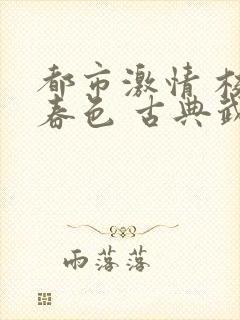 都市激情
春色 古典
雨落落